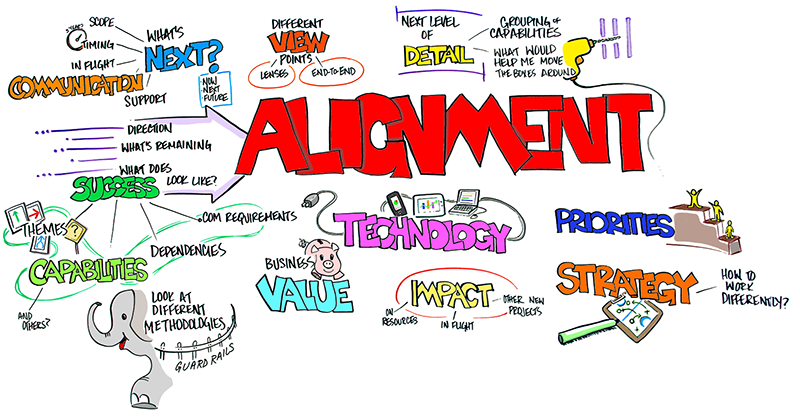 SCOPE
WHAT'S
NEXT?
TIMING
IN FLIGHT
COMMUNICATION
SUPPORT
NOW
NEXT
FUTURE
DIFFERENT
VIEW
POINTS
LENSES
END-TO-END
NEXT LEVEL
OF
DETAIL
GROUPING OF
CAPABILITIES
WHAT WOULD
HELP ME MOVE
THE BOXES AROUND
ALIGNMENT
DIRECTION
WHAT'S REMAINING
WHAT DOES
SUCCESS LOOK LIKE?
THEMES
?
.COM REQUIREMENTS
DEPENDENCIES
CAPABILITIES
AND
OTHERS?
LOOK AT
DIFFERENT
METHODOLOGIES
GUARD RAILS
TECHNOLOGY
BUSINESS
VALUE
IMPACT
ON
RESOURCES
IN FLIGHT
OTHER NEW
PROJECTS
PRIORITIES
STRATEGY
HOW TO
WORK
DIFFERENTLY?